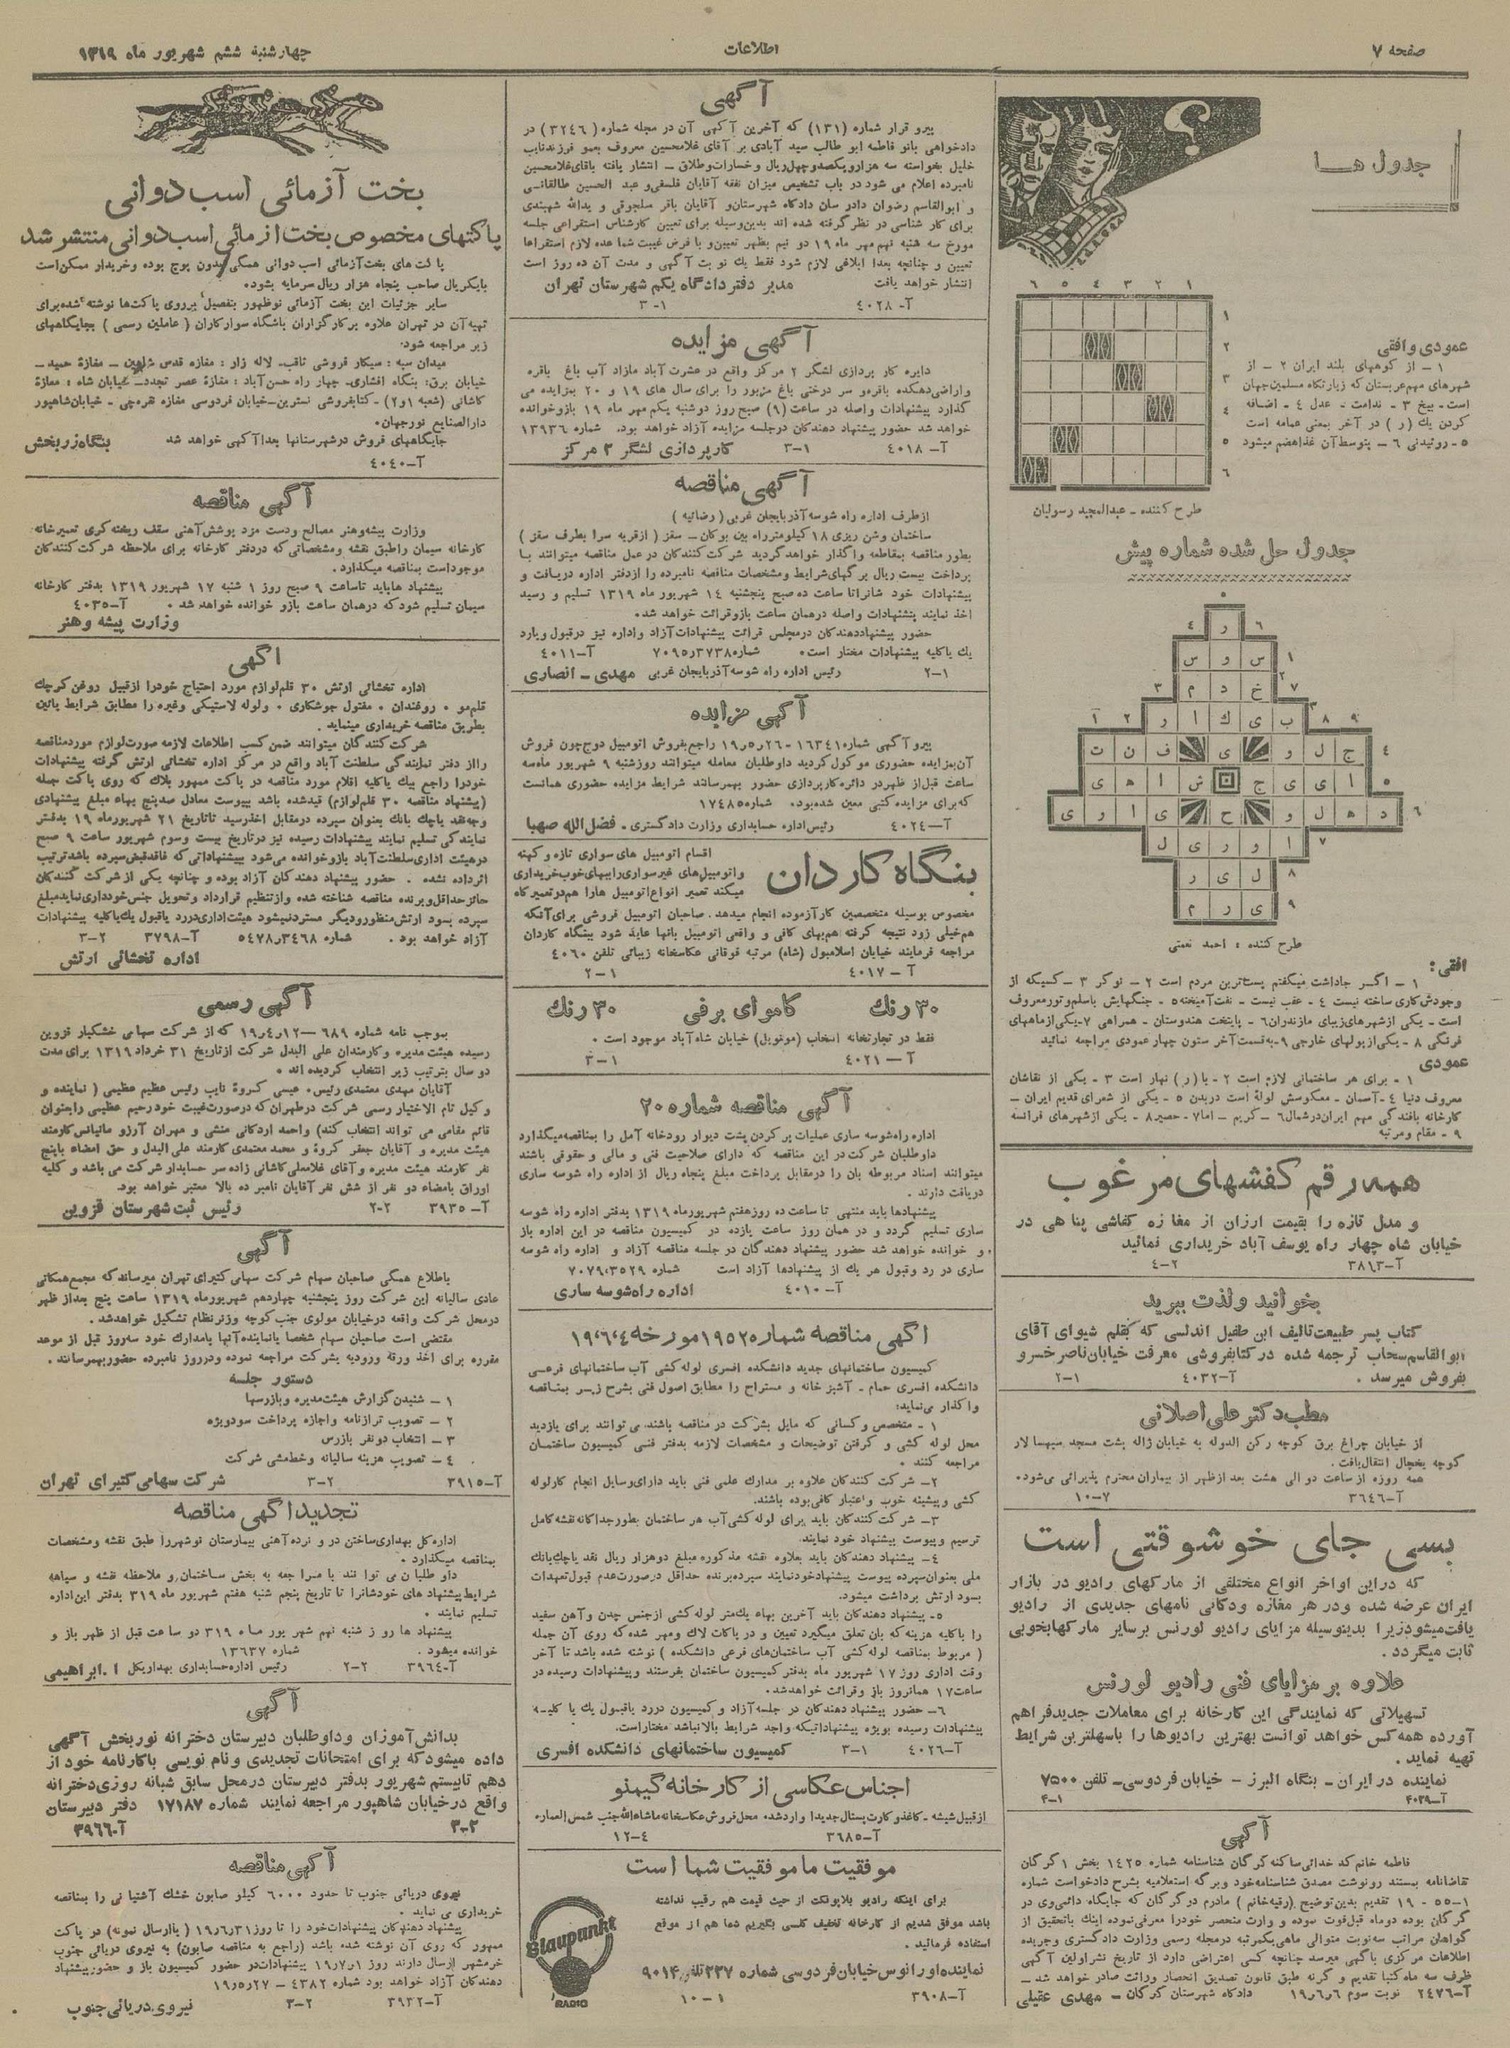 صفحه ۷
اطلاعات
چهارشنبه ششم شهریور ماه ۱۳۱۹
جدول ها
۱ ۲ ۳ ۴ ۵ ۶
عمودی وافقی
۱ - از کوههای بلند ایران ۲ - از
شهرهای مهم عربستان که زیارتگاه مسلمین جهان
است - بیخ ۳ - ندامت - عدل ۴ - اضافه
کردن یك (ر) در آخر بمعنی عمامه است
۵ - روئیدنی ۶ - بتوسط آن غذا هضم میشود
طرح کننده - عبدالمجید رسولیان
جدول حل شده شماره پیش
طرح کننده : احمد نعمتی
افقی :
۱ - اگر جا داشت میگفتم پست‌ترین مردم است ۲ - نوکر ۳ - کسیکه از
وجودش کاری ساخته نیست ۴ - عقب نیست - نفت آمیخته ۵ - جنگهایش باسلم و تور معروف
است - یکی از شهرهای زیبای مازندران ۶ - پایتخت هندوستان - همراهی ۷ - یکی از ماههای
فرنگی ۸ - یکی از پولهای خارجی ۹ - به قسمت آخر ستون چهار عمودی مراجعه نمائید
عمودی
۱ - برای هر ساختمانی لازم است ۲ - با (ر) نهار است ۳ - یکی از نقاشان
معروف دنیا ۴ - آسمان - معکوسش لوله است در بدن ۵ - یکی از شعرای قدیم ایران -
کارخانه بافندگی مهم ایران در شمال ۶ - کریم - اما ۷ - حصیر ۸ - یکی از شهرهای فرانسه
۹ - مقام و مرتبه
همه رقم کفشهای مرغوب
و مدل تازه را بقیمت ارزان از مغازه کفاشی پناهی در
خیابان شاه چهار راه یوسف آباد خریداری نمائید
آ-۳۸۶۳ ۲-۴
بخوانید و لذت ببرید
کتاب پسر طبیعت تالیف ابن طفیل اندلسی که بقلم شیوای آقای
ابوالقاسم سحاب ترجمه شده در کتابفروشی معرفت خیابان ناصرخسرو
بفروش میرسد . آ-۴۰۳۲ ۱-۲
مطب دکتر علی اصلانی
از خیابان چراغ برق کوچه رکن الدوله به خیابان ژاله پشت مسجد سپهسالار
کوچه یخچال انتقال یافت.
همه روزه از ساعت دو الی هشت بعد از ظهر از بیماران محترم پذیرائی می‌شود.
آ-۳۶۴۶ ۷-۱۰
بسی جای خوشوقتی است
که در این اواخر انواع مختلفی از مارکهای رادیو در بازار
ایران عرضه شده و در هر مغازه و دکانی نامهای جدیدی از رادیو
یافت میشود زیرا بدینوسیله مزایای رادیو لورنس برسایر مارکها بخوبی
ثابت میگردد .
علاوه بر مزایای فنی رادیو لورنس
تسهیلاتی که نمایندگی این کارخانه برای معاملات جدید فراهم
آورده همه کس خواهد توانست بهترین رادیوها را باسهلترین شرایط
تهیه نماید .
نماینده در ایران - بنگاه البرز - خیابان فردوسی - تلفن ۷۵۰۰
آ-۴۰۳۹ ۱-۴
آگهی
فاطمه خانم کدخدائی ساکنه گرگان شناسنامه شماره ۱۴۲۵ بخش ۱ گرگان
تقاضانامه بمستند رونوشت مصدق شناسنامه خود و برگه استعلامیه بشرح دادخواست شماره
۱-۵۵ - ۱۹ تقدیم بدین توضیح (رقیه خانم) مادرم در گرگان که جایگاه دائمی وی در
گرگان بوده دو ماه قبل فوت نموده و وارث منحصر خود را معرفی نموده اینك با تحقیق از
گواهان مراتب سه نوبت متوالی ماهی یکمرتبه در مجله رسمی وزارت دادگستری و جریده
اطلاعات مرکزی با گهی میرسد چنانچه کسی اعتراضی دارد از تاریخ نشر اولین آگهی
ظرف سه ماه کتبا تقدیم و گرنه طبق قانون تصدیق انحصار وراثت صادر خواهد شد -
آ-۲۴۷۶ نوبت سوم ۱۹٫۶٫۶ دادگاه شهرستان گرگان - مهدی عقیلی
آگهی
پیرو قرار شماره (۱۳۱) که آخرین آگهی آن در مجله شماره (۳۲۴۶) در
دادخواهی بانو فاطمه ابو طالب سید آبادی بر آقای غلامحسین معروف بعمو فرزند نایب
خلیل بخواسته سه هزار و یکصد و چهل ریال و خسارات و طلاق - انتشار یافته بآقای غلامحسین
نامبرده اعلام می شود در باب تشخیص میزان نفقه آقایان فلسفی و عبد الحسین طالقانی
و ابوالقاسم رضوان دادرسان دادگاه شهرستان و آقایان باقر سلجوقی و یدالله شهبندی
برای کار شناسی در نظر گرفته شده اند بدین‌وسیله برای تعیین کارشناس استقراعی جلسه
مورخ سه شنبه نهم مهر ماه ۱۹ دو نیم بظهر تعیین و با فرض غیبت شما عده لازم استقراعا
تعیین و چنانچه بعدا ابلاغی لازم شود فقط یك نوبت آگهی و مدت آن ده روز است
انتشار خواهد یافت مدیر دفتر دادگاه یکم شهرستان تهران
آ-۴۰۲۸ ۱-۳
آگهی مزایده
دایره کار پردازی لشگر ۲ مرکز واقع در عشرت آباد مازاد آب باغ باقره
و اراضی دهکده باقره و سر درختی باغ مزبور را برای سال های ۱۹ و ۲۰ بمزایده می
گذارد پیشنهادات واصله در ساعت (۹) صبح روز دوشنبه یکم مهر ماه ۱۹ بازوخوانده
خواهد شد حضور پیشنهاد دهندگان در جلسه مزایده آزاد خواهد بود. شماره ۱۳۹۳۶
آ-۴۰۱۸ ۱-۳ کارپردازی لشگر ۲ مرکز
آگهی مناقصه
از طرف اداره راه شوسه آذربایجان غربی (رضائیه)
ساختمان وشن ریزی ۱۸ کیلومتر راه بین بوکان - سقز (از قریه سرا بطرف سقز)
بطور مناقصه بمقاطعه واگذار خواهد گردید شرکت کنندگان در عمل مناقصه میتوانند با
پرداخت بیست ریال برگهای شرایط و مشخصات مناقصه نامبرده را از دفتر اداره دریافت و
پیشنهادات خود شانرا تا ساعت ده صبح پنجشنبه ۱۴ شهریور ماه ۱۳۱۹ تسلیم و رسید
اخذ نمایند پیشنهادات واصله در همان ساعت باز وقرائت خواهد شد.
حضور پیشنهاد دهندگان در مجلس قرائت پیشنهادات آزاد و اداره نیز در قبول و یا رد
یك یا کلیه پیشنهادات مختار است . شماره ۷۰۹۵٫۳۷۳۸ آ-۴۰۱۱
۱-۲ رئیس اداره راه شوسه آذربایجان غربی مهدی - انصاری
آگهی مزایده
پیرو آگهی شماره ۱۶۳۴۱ - ۱۹٫۵٫۲۶ راجع بفروش اتومبیل دوج چون فروش
آن بمزایده حضوری موکول گردید داوطلبان معامله میتوانند روزشنبه ۹ شهریور ماه سه
ساعت قبل از ظهر در دائره کارپردازی حضور بهمرسانند شرایط مزایده حضوری همانست
که برای مزایده کتبی معین شده بود. شماره ۱۷۴۸۵
آ-۴۰۲۴ رئیس اداره حسابداری وزارت دادگستری - فضل الله صهبا
بنگاه کاردان
اقسام اتومبیل های سواری تازه و کهنه
و اتومبیل‌های غیر سواری را ببهای خوب خریداری
میکند تعمیر انواع اتومبیل هارا هم در تعمیرگاه
مخصوص بوسیله متخصصین کار آزموده انجام میدهد. صاحبان اتومبیل فروشی برای آنکه
هم خیلی زود نتیجه گرفته هم بهای کافی و واقعی اتومبیل بآنها عاید شود ببنگاه کاردان
مراجعه فرمایند خیابان اسلامبول (شاه) مرتبه فوقانی عکاسخانه زیبائی تلفن ۴۰۶۰
آ-۴۰۱۷ ۱-۲
۳۰ رنك کاموای برفی ۳۰ رنك
فقط در تجارتخانه انتخاب (موتوبل) خیابان شاه آباد موجود است .
آ-۴۰۲۱ ۱-۳
آگهی مناقصه شماره ۲۰
اداره راه شوسه ساری عملیات پر کردن پشت دیوار رودخانه آمل را بمناقصه میگذارد
داوطلبان شرکت در این مناقصه که دارای صلاحیت فنی و مالی و حقوقی باشند
میتوانند اسناد مربوطه بان را درمقابل پرداخت مبلغ پنجاه ریال از اداره راه شوسه ساری
دریافت دارند .
پیشنهادها باید منتهی تا ساعت ده روز هفتم شهریور ماه ۱۳۱۹ بدفتر اداره راه شوسه
ساری تسلیم گردد و در همان روز ساعت یازده در کمیسیون مناقصه در این اداره باز
و خوانده خواهد شد حضور پیشنهاد دهندگان در جلسه مناقصه آزاد و اداره راه شوسه
ساری در رد و قبول هر یك از پیشنهادها آزاد است شماره ۷۰۷۹٫۳۵۲۹
آ-۴۰۱۰ اداره راه شوسه ساری
آگهی مناقصه شماره ۱۹۵۲ مورخه ۱۹٫۶٫۴
کمیسیون ساختمانهای جدید دانشکده افسری لوله کشی آب ساختمانهای فرعی
دانشکده افسری حمام - آشپز خانه و مستراح را مطابق اصول فنی بشرح زیر بمناقصه
واگذار می‌نماید:
۱ - متخصص و کسانی که مایل بشرکت در مناقصه باشند می توانند برای بازدید
محل لوله کشی و گرفتن توضیحات و مشخصات لازمه بدفتر فنی کمیسیون ساختمان
مراجعه کنند .
۲ - شرکت کنندگان علاوه بر مدارك علمی فنی باید دارای وسایل انجام کار لوله
کشی و پیشینه خوب و اعتبار کافی بوده باشند.
۳ - شرکت کنندگان باید برای لوله کشی آب هر ساختمان بطور جداگانه نقشه کامل
ترسیم و پیوست پیشنهاد خود نمایند.
۴ - پیشنهاد دهندگان باید بعلاوه نقشه مذکوره مبلغ دوهزار ریال نقد یا چك بانك
ملی بعنوان سپرده پیوست پیشنهاد خود نمایند سپرده برنده حداقل در صورت عدم قبول تعهدات
بسود ارتش برداشت میشود.
۵ - پیشنهاد دهندگان باید آخرین بهاء یك متر لوله کشی از جنس چدن و آهن سفید
را با کلیه هزینه که بان تعلق میگیرد تعیین و در پاکات لاك و مهر شده که روی آن جمله
(مربوط بمناقصه لوله کشی آب ساختمان‌های فرعی دانشکده) نوشته شده باشد تا آخر
وقت اداری روز ۱۷ شهریور ماه بدفتر کمیسیون ساختمان بفرستند و پیشنهادات رسیده در
ساعت ۱۷ همانروز باز وقرائت خواهد شد.
۶ - حضور پیشنهاد دهندگان در جلسه آزاد و کمیسیون در رد یا قبول یك یا کلیه
پیشنهادات رسیده بویژه پیشنهاداتیکه واجد شرایط بالا نباشد مختار است.
آ-۴۰۲۶ ۱-۳ کمیسیون ساختمانهای دانشکده افسری
اجناس عکاسی از کارخانه گیمنو
از قبیل شیشه - کاغذ و کارت پستال جدیدا وارد شده. محل فروش عکاسخانه ماشاءالله جنب شمس العماره
آ-۳۶۸۵ ۴-۱۲
موفقیت ما موفقیت شما است
برای اینکه رادیو بلاپونکت از حیث قیمت هم رقیب نداشته
باشد موفق شدیم از کارخانه تخفیف کلی بگیریم شما هم از موقع
استفاده فرمائید .
نماینده اورانوس خیابان فردوسی شماره ۲۳۷ تلفن ۹۰۱۴
آ-۳۹۰۸ ۱-۱۰
Blaupunkt
RADIO
بخت آزمائی اسب دوانی
پاکتهای مخصوص بخت آزمائی اسب دوانی منتشر شد
پاکت های بخت آزمائی اسب دوانی همگی بدون پوچ بوده و خریدار ممکن است
بایکریال صاحب پنجاه هزار ریال سرمایه بشود.
سایر جزئیات این بخت آزمائی نوظهور بتفصیل برروی پاکت‌ها نوشته شده برای
تهیه آن در تهران علاوه بر کارگزاران باشگاه سوارکاران (عاملین رسمی) بجایگاههای
زیر مراجعه شود.
میدان سپه : سیگار فروشی ثاقب - لاله زار : مغازه قدس شاهین - مغازه حمید -
خیابان برق: بنگاه افشاری - چهار راه حسن آباد : مغازه عصر تجدد - خیابان شاه : مغازه
کاشانی (شعبه ۱ و ۲) - کتابفروشی نسترین - خیابان فردوسی مغازه هره‌چی - خیابان شاهپور
دارالصنایع نورجهان .
جایگاههای فروش در شهرستانها بعدا آگهی خواهد شد بنگاه زربخش
آ-۴۰۴۰
آگهی مناقصه
وزارت پیشه وهنر مصالح ودست مزد پوشش آهنی سقف ریخته گری تعمیر خانه
کارخانه سیمان را طبق نقشه و مشخصاتی که در دفتر کارخانه برای ملاحظه شرکت کنندگان
موجود است بمناقصه میگذارد.
پیشنهاد ها باید تا ساعت ۹ صبح روز ۱ شنبه ۱۷ شهریور ۱۳۱۹ بدفتر کارخانه
سیمان تسلیم شود که در همان ساعت باز و خوانده خواهد شد . آ-۴۰۳۵
وزارت پیشه وهنر
آگهی
اداره تخشائی ارتش ۳۰ قلم لوازم مورد احتیاج خود را از قبیل روغن کرچك
قلم مو . روغندان . مفتول جوشکاری . ولوله لاستیکی وغیره را مطابق شرایط پائین
بطریق مناقصه خریداری مینماید .
شرکت کنندگان میتوانند ضمن کسب اطلاعات لازمه صورت لوازم مورد مناقصه
را از دفتر نمایندگی سلطنت آباد واقع در مرکز اداره تخشائی ارتش گرفته پیشنهادات
خود را راجع بیك یا کلیه اقلام مورد مناقصه در پاکت ممهور بلاك که روی پاکت جمله
(پیشنهاد مناقصه ۳۰ قلم لوازم) قید شده باشد بپیوست معادل صدپنج بهاء مبلغ پیشنهادی
وجه نقد یا چك بانك بعنوان سپرده درمقابل اخذ رسید تا تاریخ ۲۱ شهریور ماه ۱۹ بدفتر
نمایندگی تسلیم نمایند پیشنهادات رسیده نیز در تاریخ بیست وسوم شهریور ساعت ۹ صبح
در هیئت اداری سلطنت آباد باز و خوانده می‌شود بپیشنهاداتی که فاقد قبض سپرده باشد ترتیب
اثر داده نشده . حضور پیشنهاد دهندگان آزاد بوده و چنانچه یکی از شرکت کنندگان
حائز حداقل و برنده مناقصه شناخته شده و از تنظیم قرارداد و تحویل جنس خودداری نماید مبلغ
سپرده بسود ارتش منظور و دیگر مسترد نمیشود هیئت اداری در رد یا قبول یك یا کلیه پیشنهادات
آزاد خواهد بود . شماره ۵۴۷۸٫۳۴۶۸ آ-۳۷۹۸ ۲-۳
اداره تخشائی ارتش
آگهی رسمی
بموجب نامه شماره ۶۸۹ - ۱۹٫۴٫۱۲ که از شرکت سهامی خشکبار قزوین
رسیده هیئت مدیره و کارمندان علی البدل شرکت از تاریخ ۳۱ خرداد ۱۳۱۹ برای مدت
دو سال بترتیب زیر انتخاب گردیده اند .
آقایان مهدی معتمدی رئیس . عیسی کروة نایب رئیس عظیم عظیمی (نماینده و
وکیل تام الاختیار رسمی شرکت در طهران که در صورت غیبت خود رحیم عظیمی را بعنوان
قائم مقامی می تواند انتخاب کند) واحمد اردکانی منشی و مهران آرزو مانیانس کارمند
هیئت مدیره و آقایان جعفر کروة و محمد معتمدی کارمند علی البدل و حق امضاء با پنج
نفر کارمند هیئت مدیره و آقای غلامعلی کاشانی زاده سر حسابدار شرکت می باشد و کلیه
اوراق بامضاء دو نفر از شش نفر آقایان نامبر ده بالا معتبر خواهد بود.
آ-۳۹۳۵ ۲-۲ رئیس ثبت شهرستان قزوین
آگهی
باطلاع همگی صاحبان سهام شرکت سهامی کتیرای تهران میرساند که مجمع همگانی
عادی سالیانه این شرکت روز پنجشنبه چهاردهم شهریور ماه ۱۳۱۹ ساعت پنج بعد از ظهر
در محل شرکت واقعه در خیابان مولوی جنب کوچه وزیر نظام تشکیل خواهد شد.
مقتضی است صاحبان سهام شخصا یا نماینده آنها بامدارك خود سه روز قبل از موعد
مقرره برای اخذ ورقه ورودیه بشرکت مراجعه نموده و در روز نامبرده حضور بهمرسانند .
دستور جلسه
۱ - شنیدن گزارش هیئت مدیره و بازرسها
۲ - تصویب ترازنامه و اجازه پرداخت سود ویژه
۳ - انتخاب دو نفر بازرس
۴ - تصویب هزینه سالیانه و خط مشی شرکت
آ-۳۹۱۵ ۲-۳ شرکت سهامی کتیرای تهران
تجدید آگهی مناقصه
اداره کل بهداری ساختن در و نرده آهنی بیمارستان نوشهر را طبق نقشه و مشخصات
بمناقصه میگذارد .
داوطلبان می توانند با مراجعه به بخش ساختمان و ملاحظه نقشه و سیاهه
شرایط پیشنهاد های خودشانرا تا تاریخ پنجم شنبه هفتم شهریور ماه ۳۱۹ بدفتر این اداره
تسلیم نمایند .
پیشنهاد ها روز شنبه نهم شهریور ماه ۳۱۹ دو ساعت قبل از ظهر باز و
خوانده میشود . شماره ۱۳۶۳۷
آ-۳۹۶۴ ۲-۲ رئیس اداره حسابداری بهداریکل ا . ابراهیمی
آگهی
بدانش آموزان و داوطلبان دبیرستان دخترانه نوربخش آگهی
داده میشود که برای امتحانات تجدیدی و نام نویسی با کارنامه خود از
دهم تا بیستم شهریور بدفتر دبیرستان در محل سابق شبانه روزی دخترانه
واقع در خیابان شاهپور مراجعه نمایند شماره ۱۷۱۸۷ دفتر دبیرستان
۲-۳ آ-۳۹۶۶
آگهی مناقصه
نیروی دریائی جنوب تا حدود ۶۰۰۰ کیلو صابون خشك آشتیانی را بمناقصه
خریداری می نماید .
پیشنهاد دهندگان پیشنهادات خود را تا روز ۱۹٫۶٫۳۱ (با ارسال نمونه) در پاکت
ممهور که روی آن نوشته شده باشد (راجع به مناقصه صابون) به نیروی دریائی جنوب
خرمشهر ارسال دارند روز ۱۹٫۷٫۱ پیشنهادات در حضور کمیسیون باز و حضور پیشنهاد
دهندگان آزاد خواهد بود شماره ۴۳۸۲ - ۱۹٫۵٫۲۷
آ-۳۹۳۲ ۲-۳ نیروی دریائی جنوب